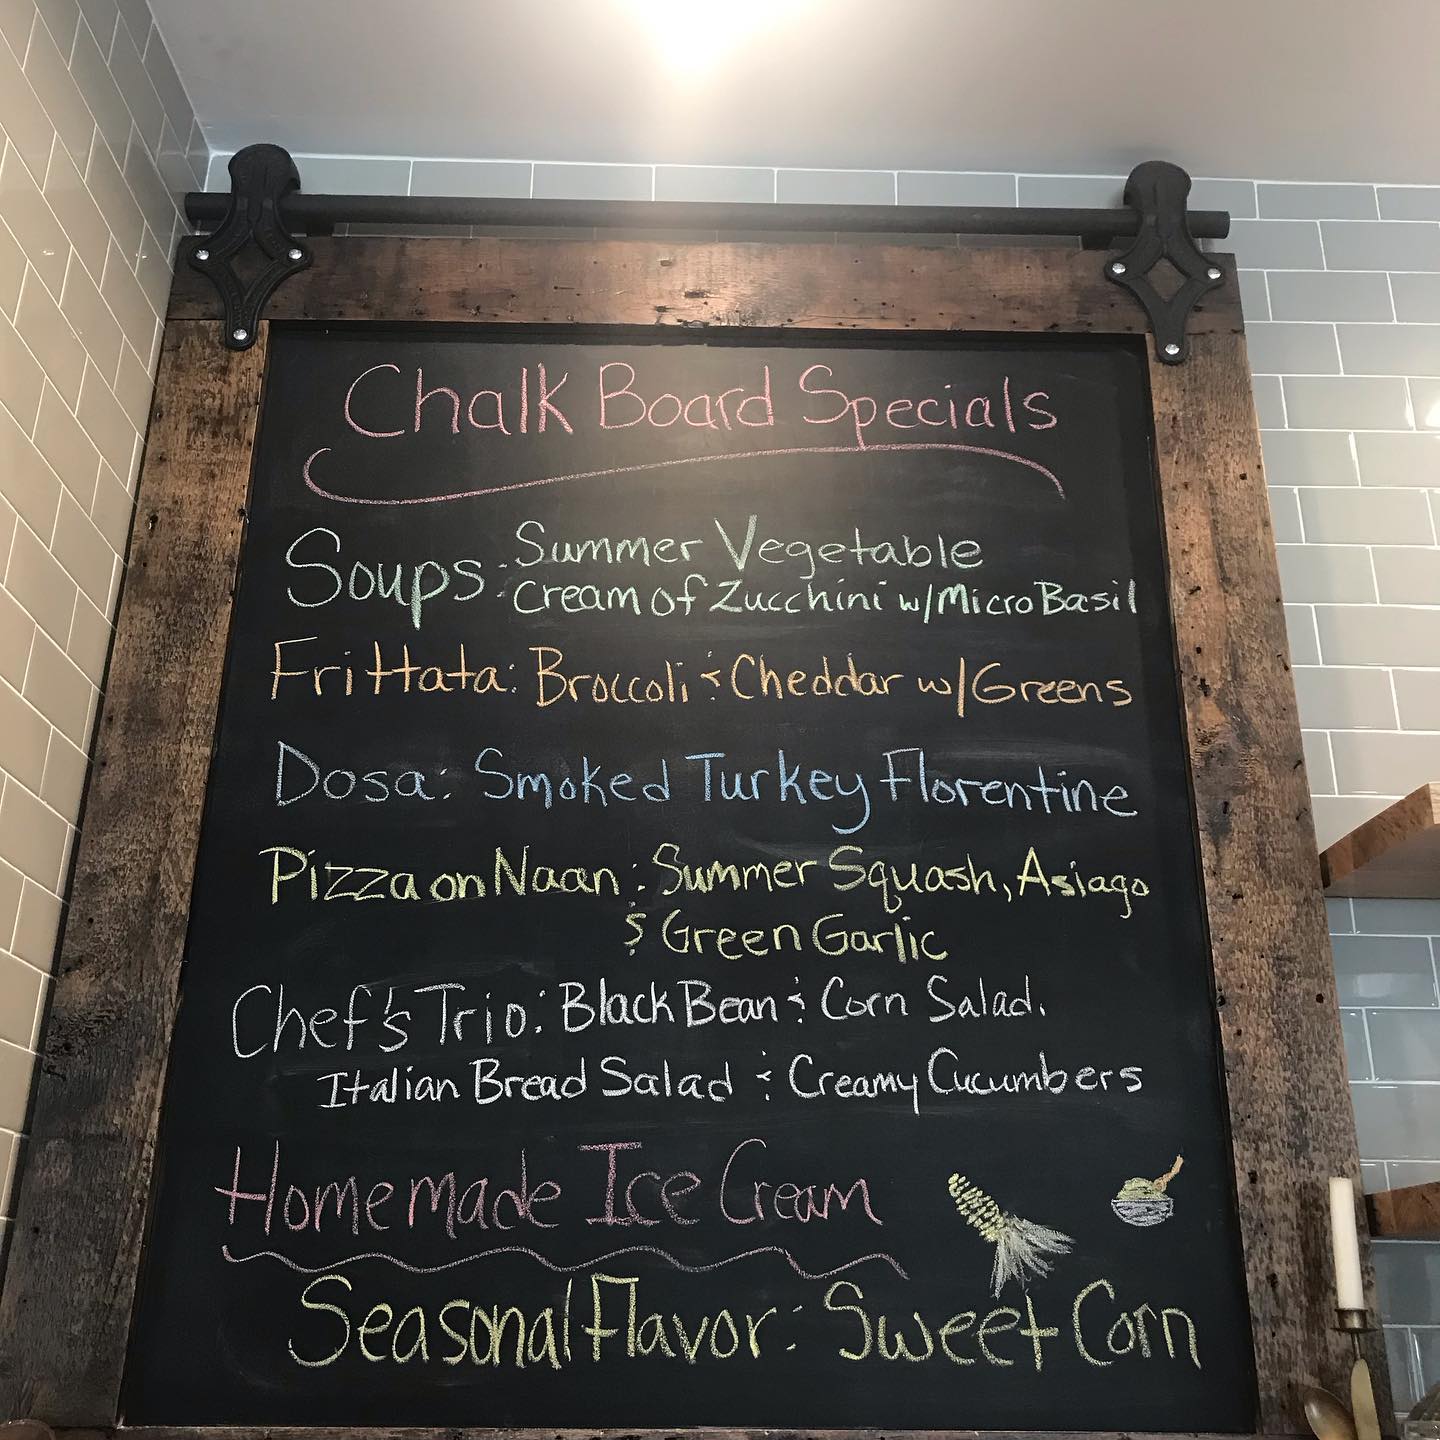 Chalk Board Specials
Soups: Summer Vegetable
Cream of Zucchini w/Micro Basil
Frittata: Broccoli & Cheddar w/Greens
Dosa: Smoked Turkey Florentine
Pizza on Naan: Summer Squash, Asiago
& Green Garlic
Chef's Trio: Black Bean & Corn Salad.
Italian Bread Salad & Creamy Cucumbers
Homemade Ice Cream
Seasonal Flavor: Sweet Corn